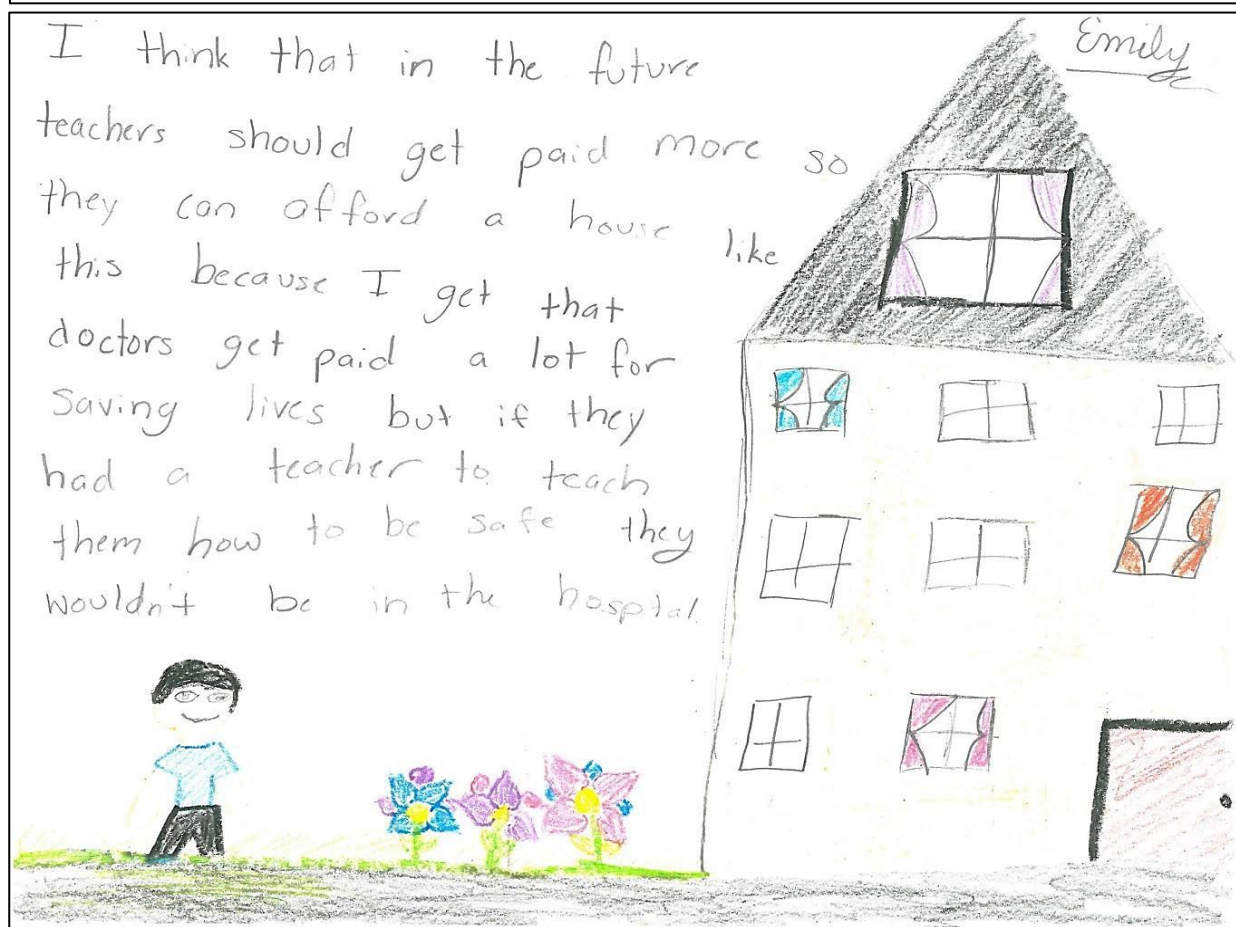 Emily
I think that in the future
teachers should get paid more so
they can afford a house like
this because I get that
doctors get paid a lot for
saving lives but if they
had a teacher to teach
them how to be safe they
wouldn't be in the hosptal